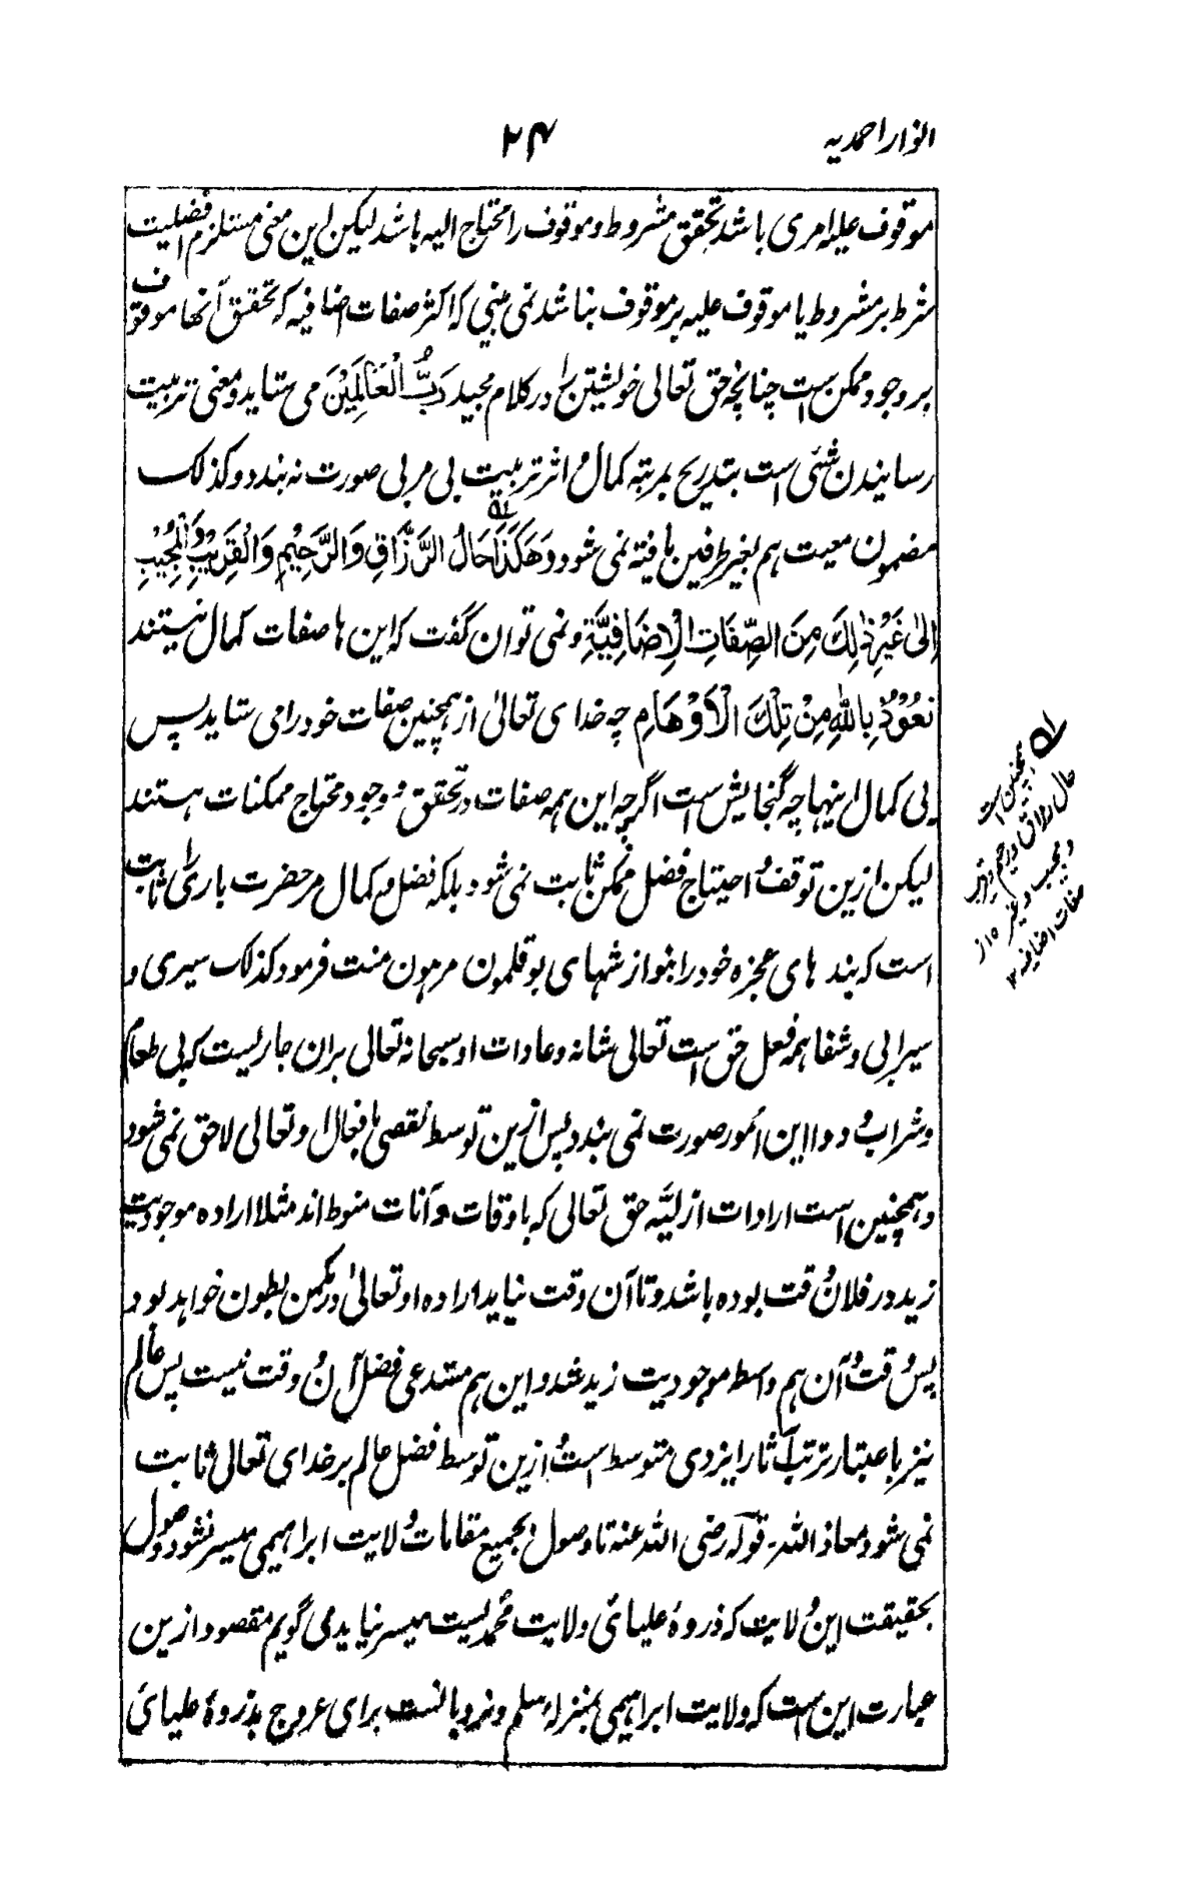 انوار احمدیہ
۲۴
موقوف علیہ امری باشد تحقق مشروط و موقوف را محتاج الیہ باشد لیکن این معنی مستلزم افضلیت
شرط بر مشروط یا موقوف علیہ بر موقوف بناشد نمی بینی کہ اکثر صفات اضافیہ کہ تحقق آنها موقوف
بر وجود ممکن است چنانچہ حق تعالی خویشتن را در کلام مجید رَبُّ الْعَالَمِیْنَ می ستاید و معنی تربیت
رسانیدن شئی است بتدریج بمرتبہ کمال و اثر تربیت بی مربی صورت نہ بندد و کذلک
مضمون معیت ہم بغیر طرفین یافتہ نمی شود وَهَکَذَا حَالُ الرَّزَّاقِ وَالرَّحِیْمِ وَالْقَرِیْبِ وَالْمُجِیْبِ
اِلٰی غَیْرِ ذٰلِکَ مِنَ الصِّفَاتِ الْاِضَافِیَّةِ و نمی توان گفت کہ این ها صفات کمال نیستند
نَعُوْذُ بِاللّٰهِ مِنْ تِلْکَ الْاَوْهَامِ چہ خدای تعالیٰ از همچنین صفات خود را می ستاید پس
بی کمال اینها چہ گنجایش است اگرچہ این همہ صفات در تحقق و وجود محتاج ممکنات هستند
لیکن ازین توقف و احتیاج فضل ممکن ثابت نمی شود بلکہ فضل و کمال مر حضرت باری را ثابت
است کہ بندہ های عجزہ خود را بنوازشهای بوقلمون مرہون منت فرمود کذلک سیری و
سیرابی و شفا همہ فعل حق است تعالی شانہ و عادات او سبحانہ تعالی بران جاریست کہ بی طعام
و شراب و دوا این اُمور صورت نمی بندد پس ازین توسط نقصی بافعال او تعالی لاحق نمی شود
و همچنین است ارادات ازلیَّہ حق تعالی کہ باوقات و آنات منوط اند مثلا ارادہ موجودیت
زید در فلان وقت بودہ باشد و تا آن وقت نیاید ارادہ او تعالیٰ در مکمن بطون خواهد بود
پس وقت آن هم واسطہ موجودیت زید شد و این هم مستدعی فضل آن وقت نیست پس عالم
نیز باعتبار ترتب آثار ایزدی متوسط است و ازین توسط فضل عالم بر خدای تعالی ثابت
نمی شود معاذ اللہ۔ قولہ رضی اللہ عنہ تا وصول بجمیع مقامات ولایت ابراهیمی میسر نشود وصول
بحقیقت این ولایت کہ ذروۂ علیائی ولایت محمدیست میسر نیاید می گویم مقصود ازین
عبارت این است کہ ولایت ابراهیمی بمنزلہ سلم و نردبانست برای عروج بذروۂ علیائی
لہ همچنین است
حال رزاق و رحیم و قریب
و مجیب و غیرہ از
صفات اضافیہ ۱۲